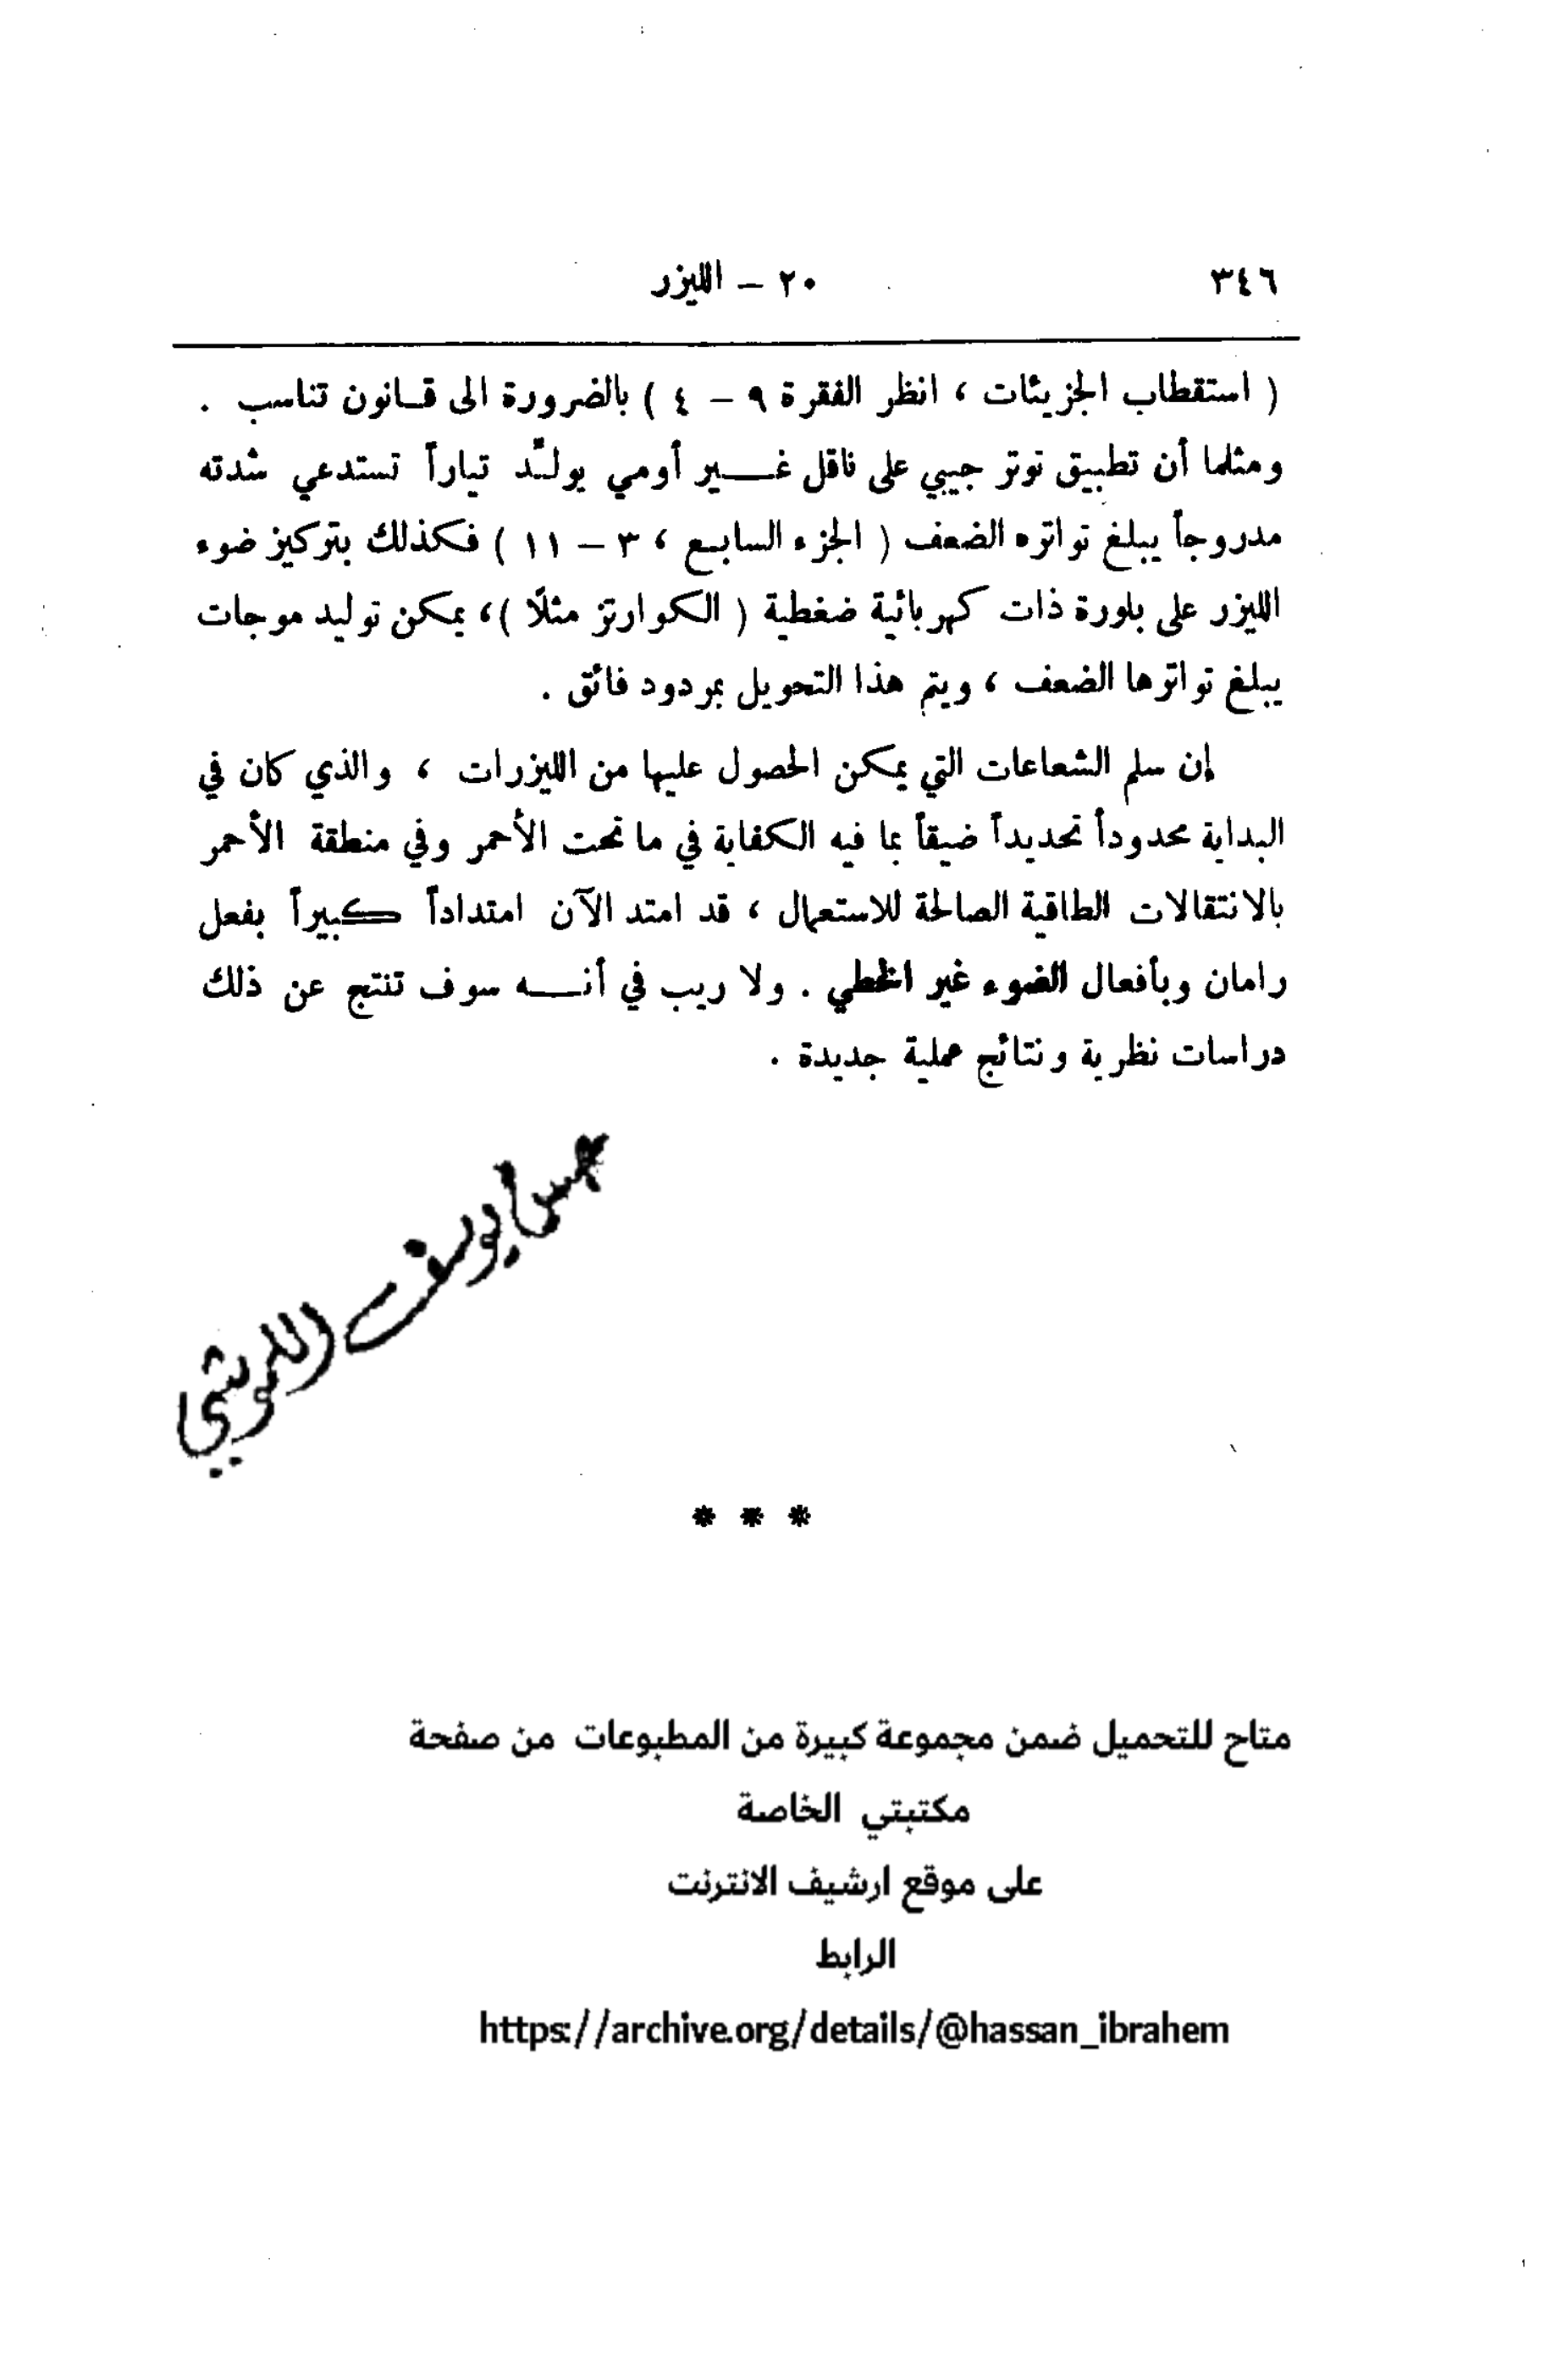 ٣٤٦
٢٠ – الليزر
( استقطاب الجزيئات ، انظر الفقرة ٩ – ٤ ) بالضرورة الى قـانون تناسب .
ومثلما أن تطبيق توتر جيبي على ناقل غـــير أومي يولـّد تياراً تستدعي شدته
مدروجاً يبلغ تواتره الضعف ( الجزء السابع ، ٣ – ١١ ) فكذلك بتركيز ضوء
الليزر على بلورة ذات كهربائية ضغطية ( الكوارتز مثلًا )، يمكن توليد موجات
يبلغ تواترها الضعف ، ويتم هذا التحويل بمردود فائق .
إن سلم الشعاعات التي يمكن الحصول عليها من الليزرات ، والذي كان في
البداية محدوداً تحديداً ضيقاً بما فيه الكفاية في ما تحت الأحمر وفي منطقة الأحمر
بالانتقالات الطاقية الصالحة للاستعمال ، قد امتد الآن امتداداً كبيراً بفعل
رامان وبأفعال الضوء غير الخطي . ولا ريب في أنـــه سوف تنتج عن ذلك
دراسات نظرية ونتائج عملية جديدة .
يوسف
* * *
متاح للتحميل ضمن مجموعة كبيرة من المطبوعات من صفحة
مكتبتي الخاصة
على موقع ارشيف الانترنت
الرابط
https://archive.org/details/@hassan_ibrahem